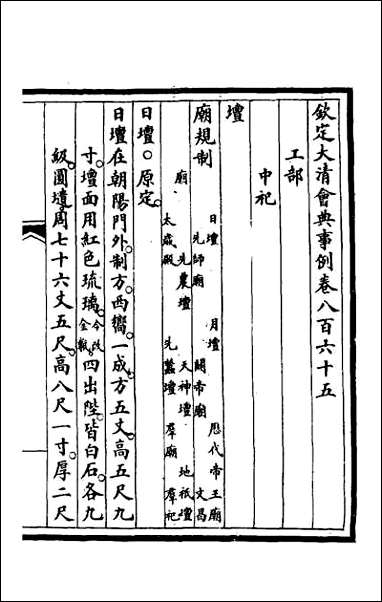 欽定大清會典事例卷八百六十五
工部
中祀
壇
廟規制 日壇 月壇 厯代帝王廟
先師廟 關帝廟 文昌
廟 先農壇 天神壇 地祇壇
太歲殿 先蠶壇 羣廟 羣祀
日壇○原定。
日壇在朝陽門外。制方。西嚮。一成。方五丈。高五尺九
寸。壇面用紅色琉璃。今改金甎。四出陛。皆白石。各九
級。圓壝周七十六丈五尺。高八尺一寸。厚二尺